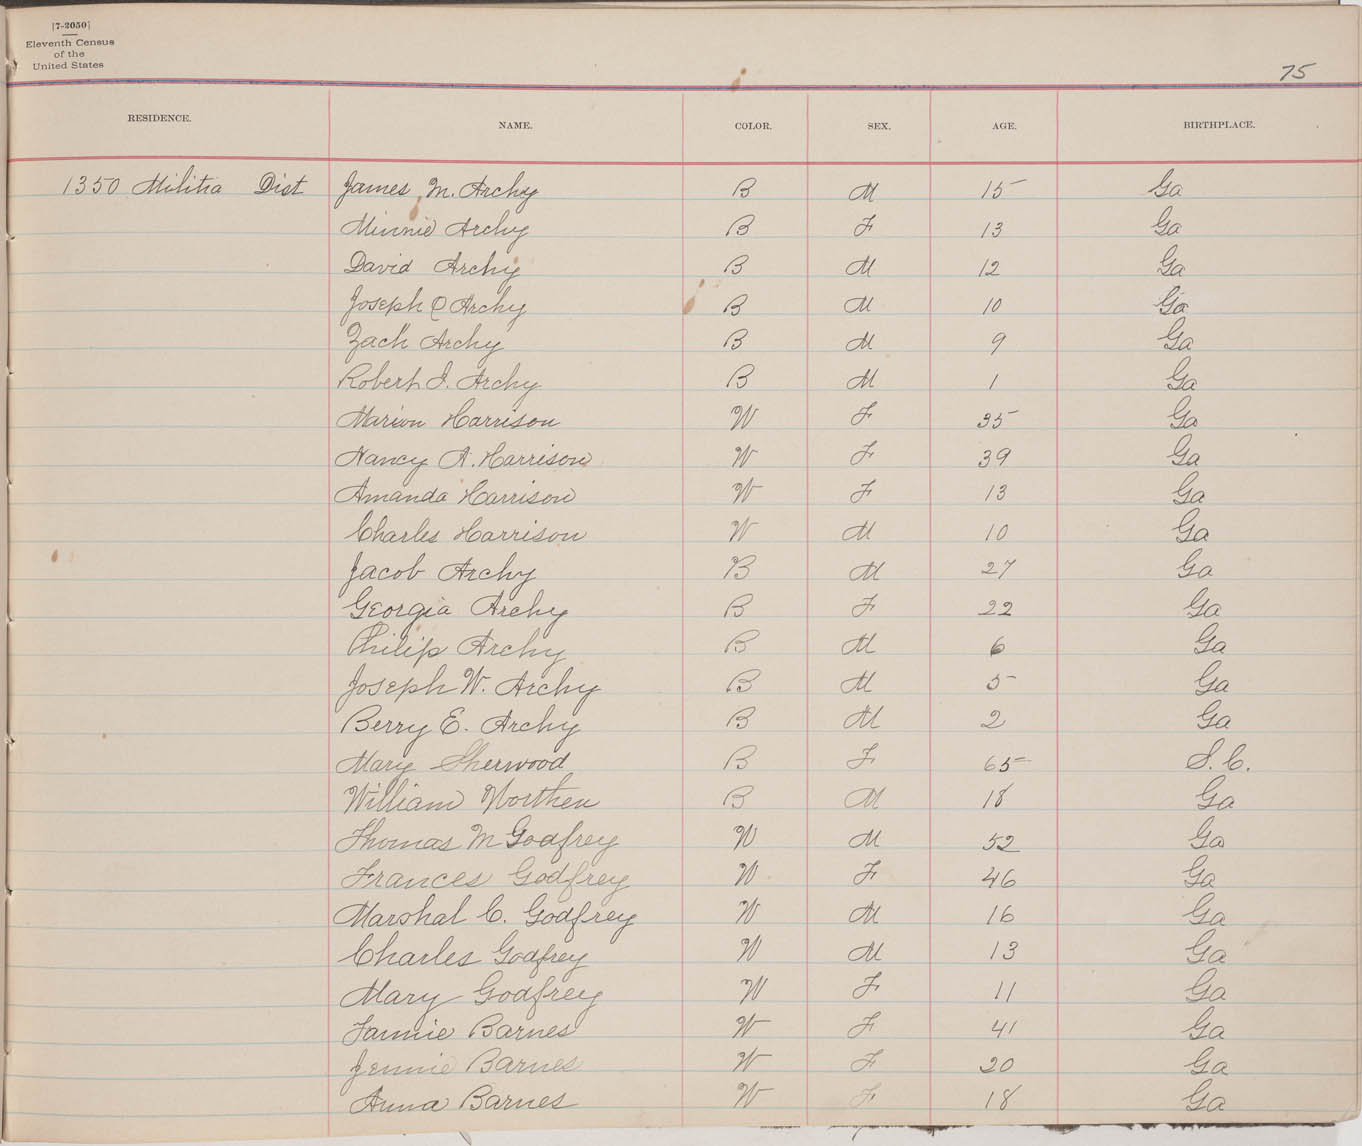 [7-2050]
Eleventh Census
of the
United States
75
RESIDENCE. NAME. COLOR. SEX. AGE. BIRTHPLACE.
1350 Militia Dist James M. Archy B M 15 Ga
Minnie Archy B F 13 Ga
David Archy B M 12 Ga
Joseph C Archy B M 10 Ga
Zach Archy B M 9 Ga
Robert J. Archy B M 1 Ga
Marion Harrison W F 35 Ga
Nancy A. Harrison W F 39 Ga
Amanda Harrison W F 13 Ga
Charles Harrison W M 10 Ga
Jacob Archy B M 27 Ga
Georgia Archy B F 22 Ga
Philip Archy B M 6 Ga
Joseph W. Archy B M 5 Ga
Berry E. Archy B M 2 Ga
Mary Sherwood B F 65 S.C.
William Northen B M 18 Ga
Thomas M Godfrey W M 52 Ga
Frances Godfrey W F 46 Ga
Marshal C. Godfrey W M 16 Ga
Charles Godfrey W M 13 Ga
Mary Godfrey W F 11 Ga
Fannie Barnes W F 41 Ga
Jennie Barnes W F 20 Ga
Anna Barnes W F 18 Ga